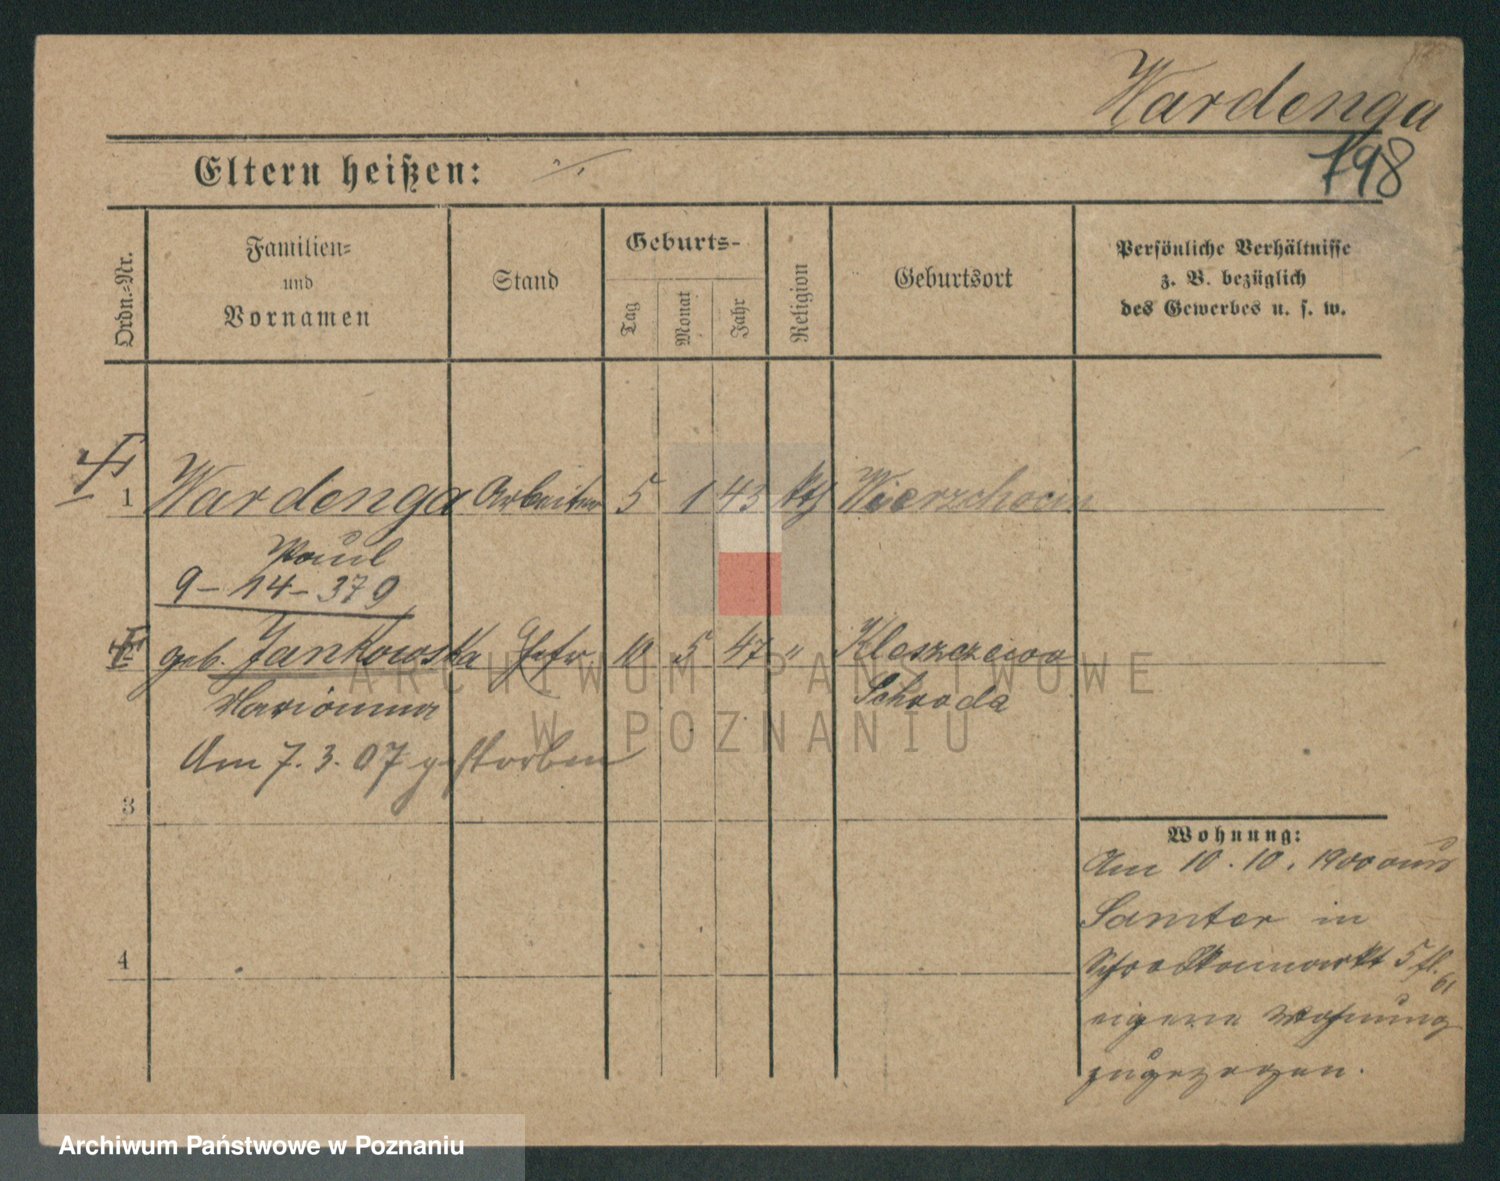 Wardenga
798
Eltern heißen: ⁒
Ordn.-Nr.
Familien-
und
Vornamen
Stand
Geburts-
Tag
Monat
Jahr
Religion
Geburtsort
Persönliche Verhältnisse
z. B. bezüglich
des Gewerbes u. s. w.
1 Wardenga Arbeiter 5 1 43 kth Wierzchocin
Paul
9-14-379
geb. Jankowska Ehefr 10 5 47 " Kleszczewo
Schroda
Marianna
Am 7.3.07 gestorben
3
4
Wohnung:
Am 10.10.1900 aus
Samter in
5
eigene Wohnung
zugezogen.
ARCHIWUM PAŃSTWOWE
W POZNANIU
Archiwum Państwowe w Poznaniu